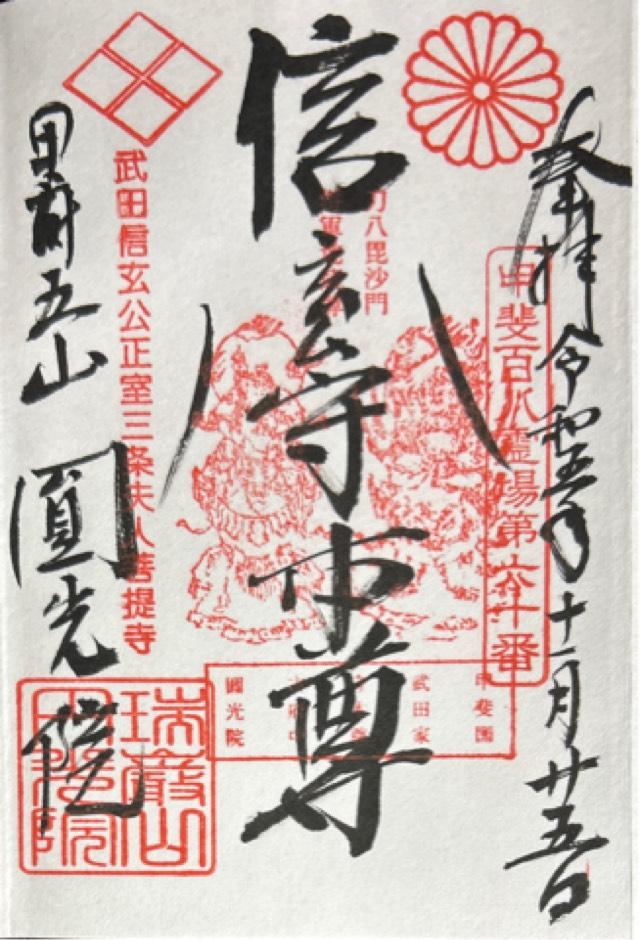 奉拝 令和五年十一月廿五日
甲斐百八霊場第六十番
刀八毘沙門
信玄守本尊
甲斐国
武田家
圓光院
武田信玄公正室三条夫人菩提寺
甲府五山 圓光院
瑞巖山
圓光院